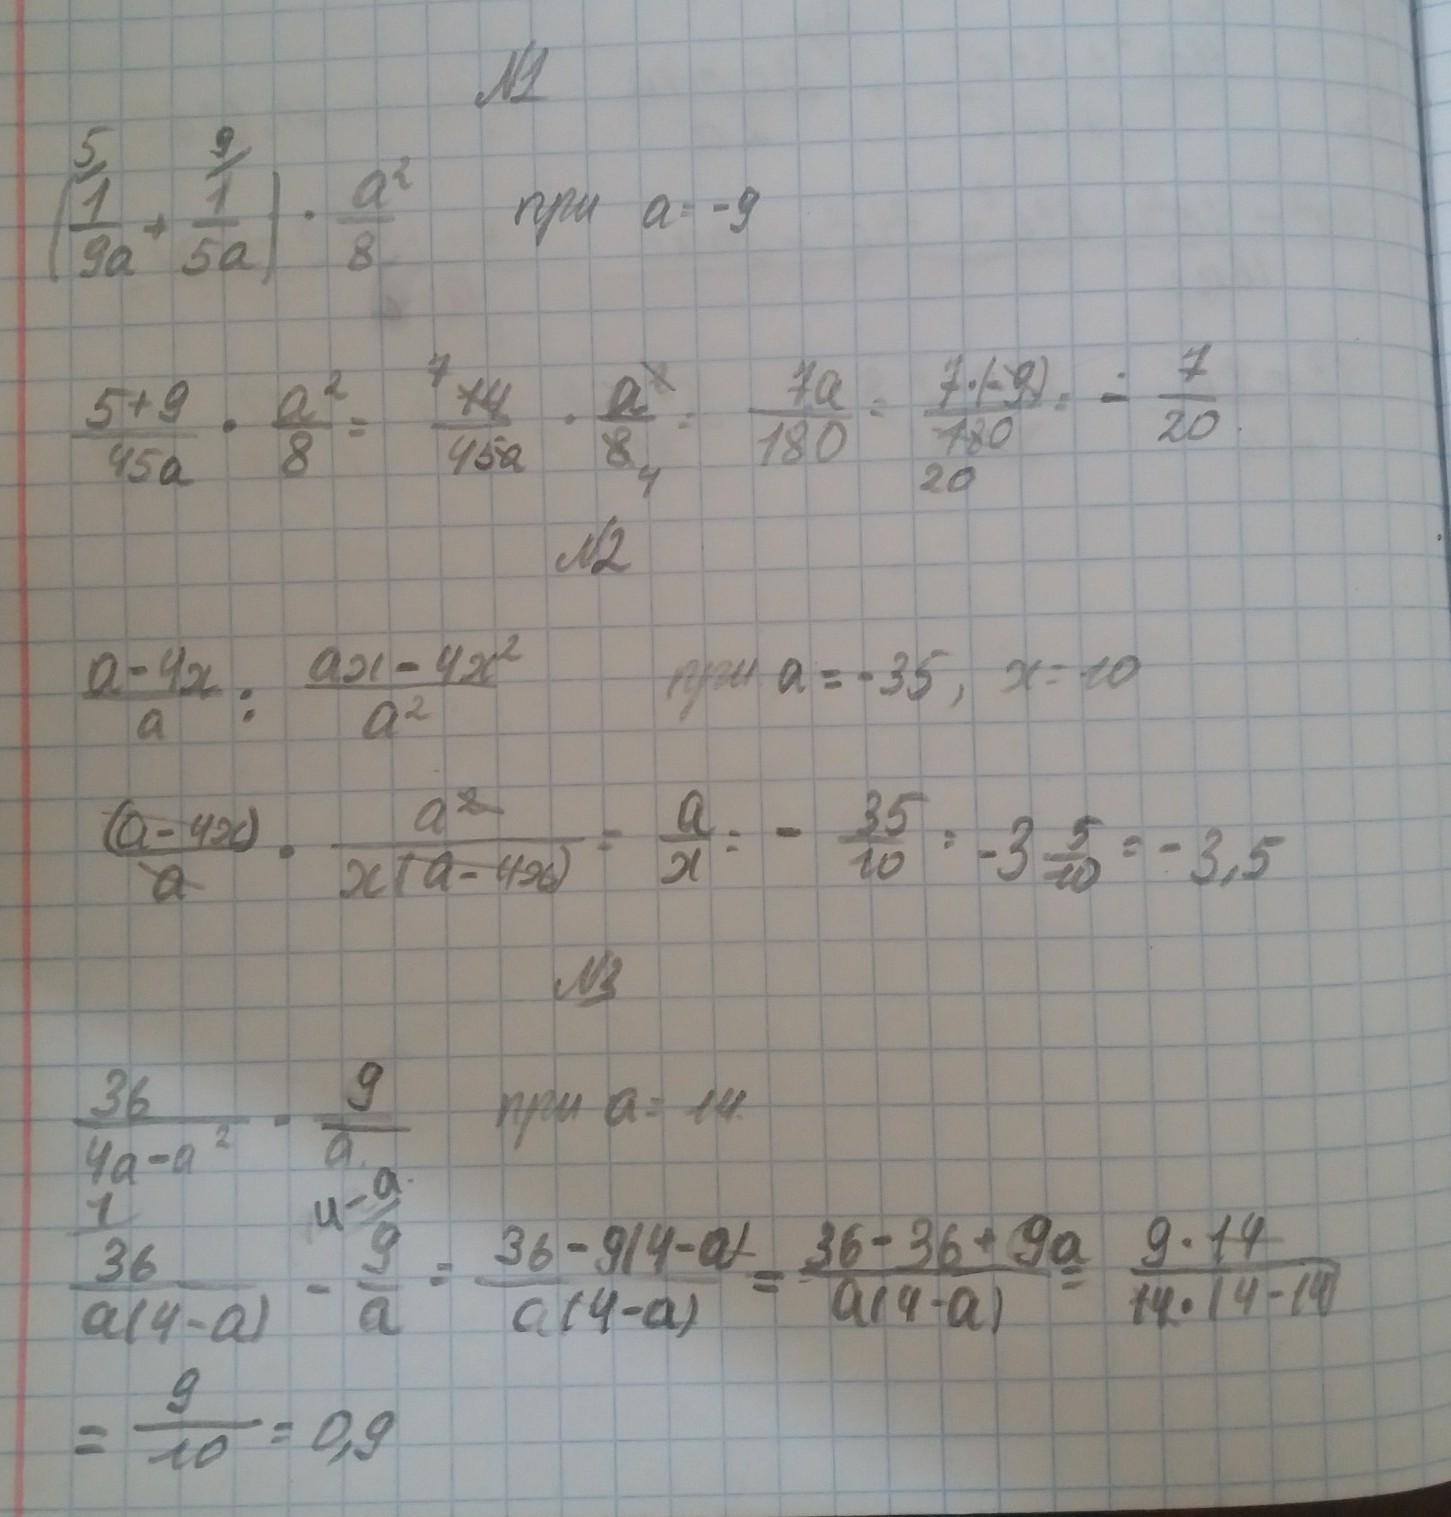 №1
(5/ 1/9a + 9/ 1/5a) · a²/8 при a = -9
(5+9)/45a · a²/8 = 7 14/45a · a²/8 4 = 7a/180 = 7·(-9)/180 20 = - 7/20
№2
(a-4x)/a : (ax-4x²)/a² при a = -35, x = 10
(a-4x)/a · a²/x(a-4x) = a/x = - 35/10 = -3 5/10 = -3,5
№3
36/(4a-a²) - 9/a при a = 14
1 4-a
36/a(4-a) - 9/a = (36-9(4-a))/a(4-a) = (36-36+9a)/a(4-a) = 9·14/14·(4-14)
= 9/10 = 0,9